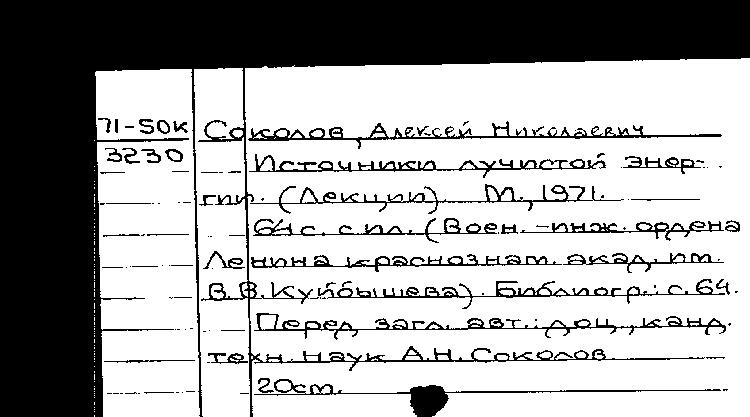 71-50к Соколов, Алексей Николаевич
3230 Источники лучистой энер-
гии. (Лекции). М., 1971.
64 с. с ил. (Воен.-инж. ордена
Ленина краснознам. акад. им.
В.В. Куйбышева). Библиогр.: с. 64.
Перед загл. авт.: доц., канд.
техн. наук А.Н. Соколов.
20см.